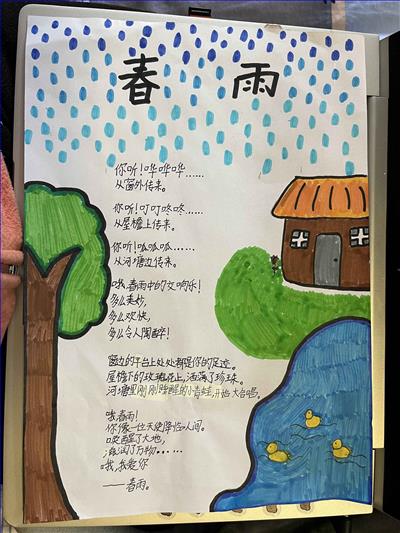 春 雨
你听!哗哗哗……
从窗外传来。
你听!叮叮咚咚……
从屋檐上传来。
你听!呱呱呱……
从河塘边传来。
哦,春雨中的交响乐!
多么美妙,
多么欢快,
多么令人陶醉!
窗边的平台上处处都是你的足迹。
屋檐下的玫瑰花上,洒满了珍珠。
河塘里刚刚睡醒的小青蛙,开始大合唱。
哦,春雨!
你像一位天使降临人间。
唤醒了大地,
滋润了万物……
哦,我爱你
——春雨。